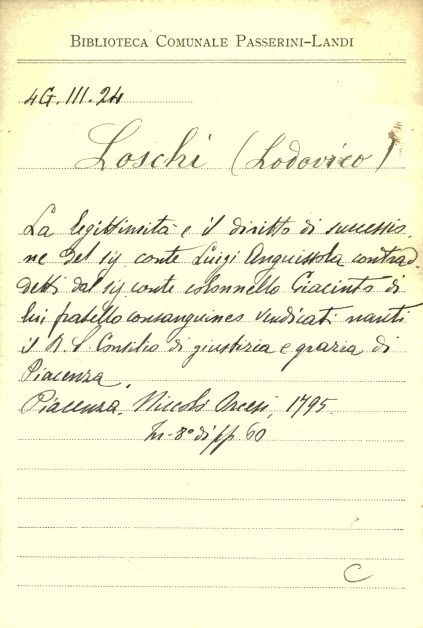 BIBLIOTECA COMUNALE PASSERINI-LANDI
4G.III.24
Loschi (Lodovico)
La legittimità e il diritto di successio-
ne del sig conte Luigi Anguissola contrad-
detti dal sig conte colonnello Giacinto di
lui fratello consanguineo vendicati nanti
il R. S. Consilio di giustizia e grazia di
Piacenza.
Piacenza, Niccolò Orcesi, 1795.
In-8° di pp 60
C